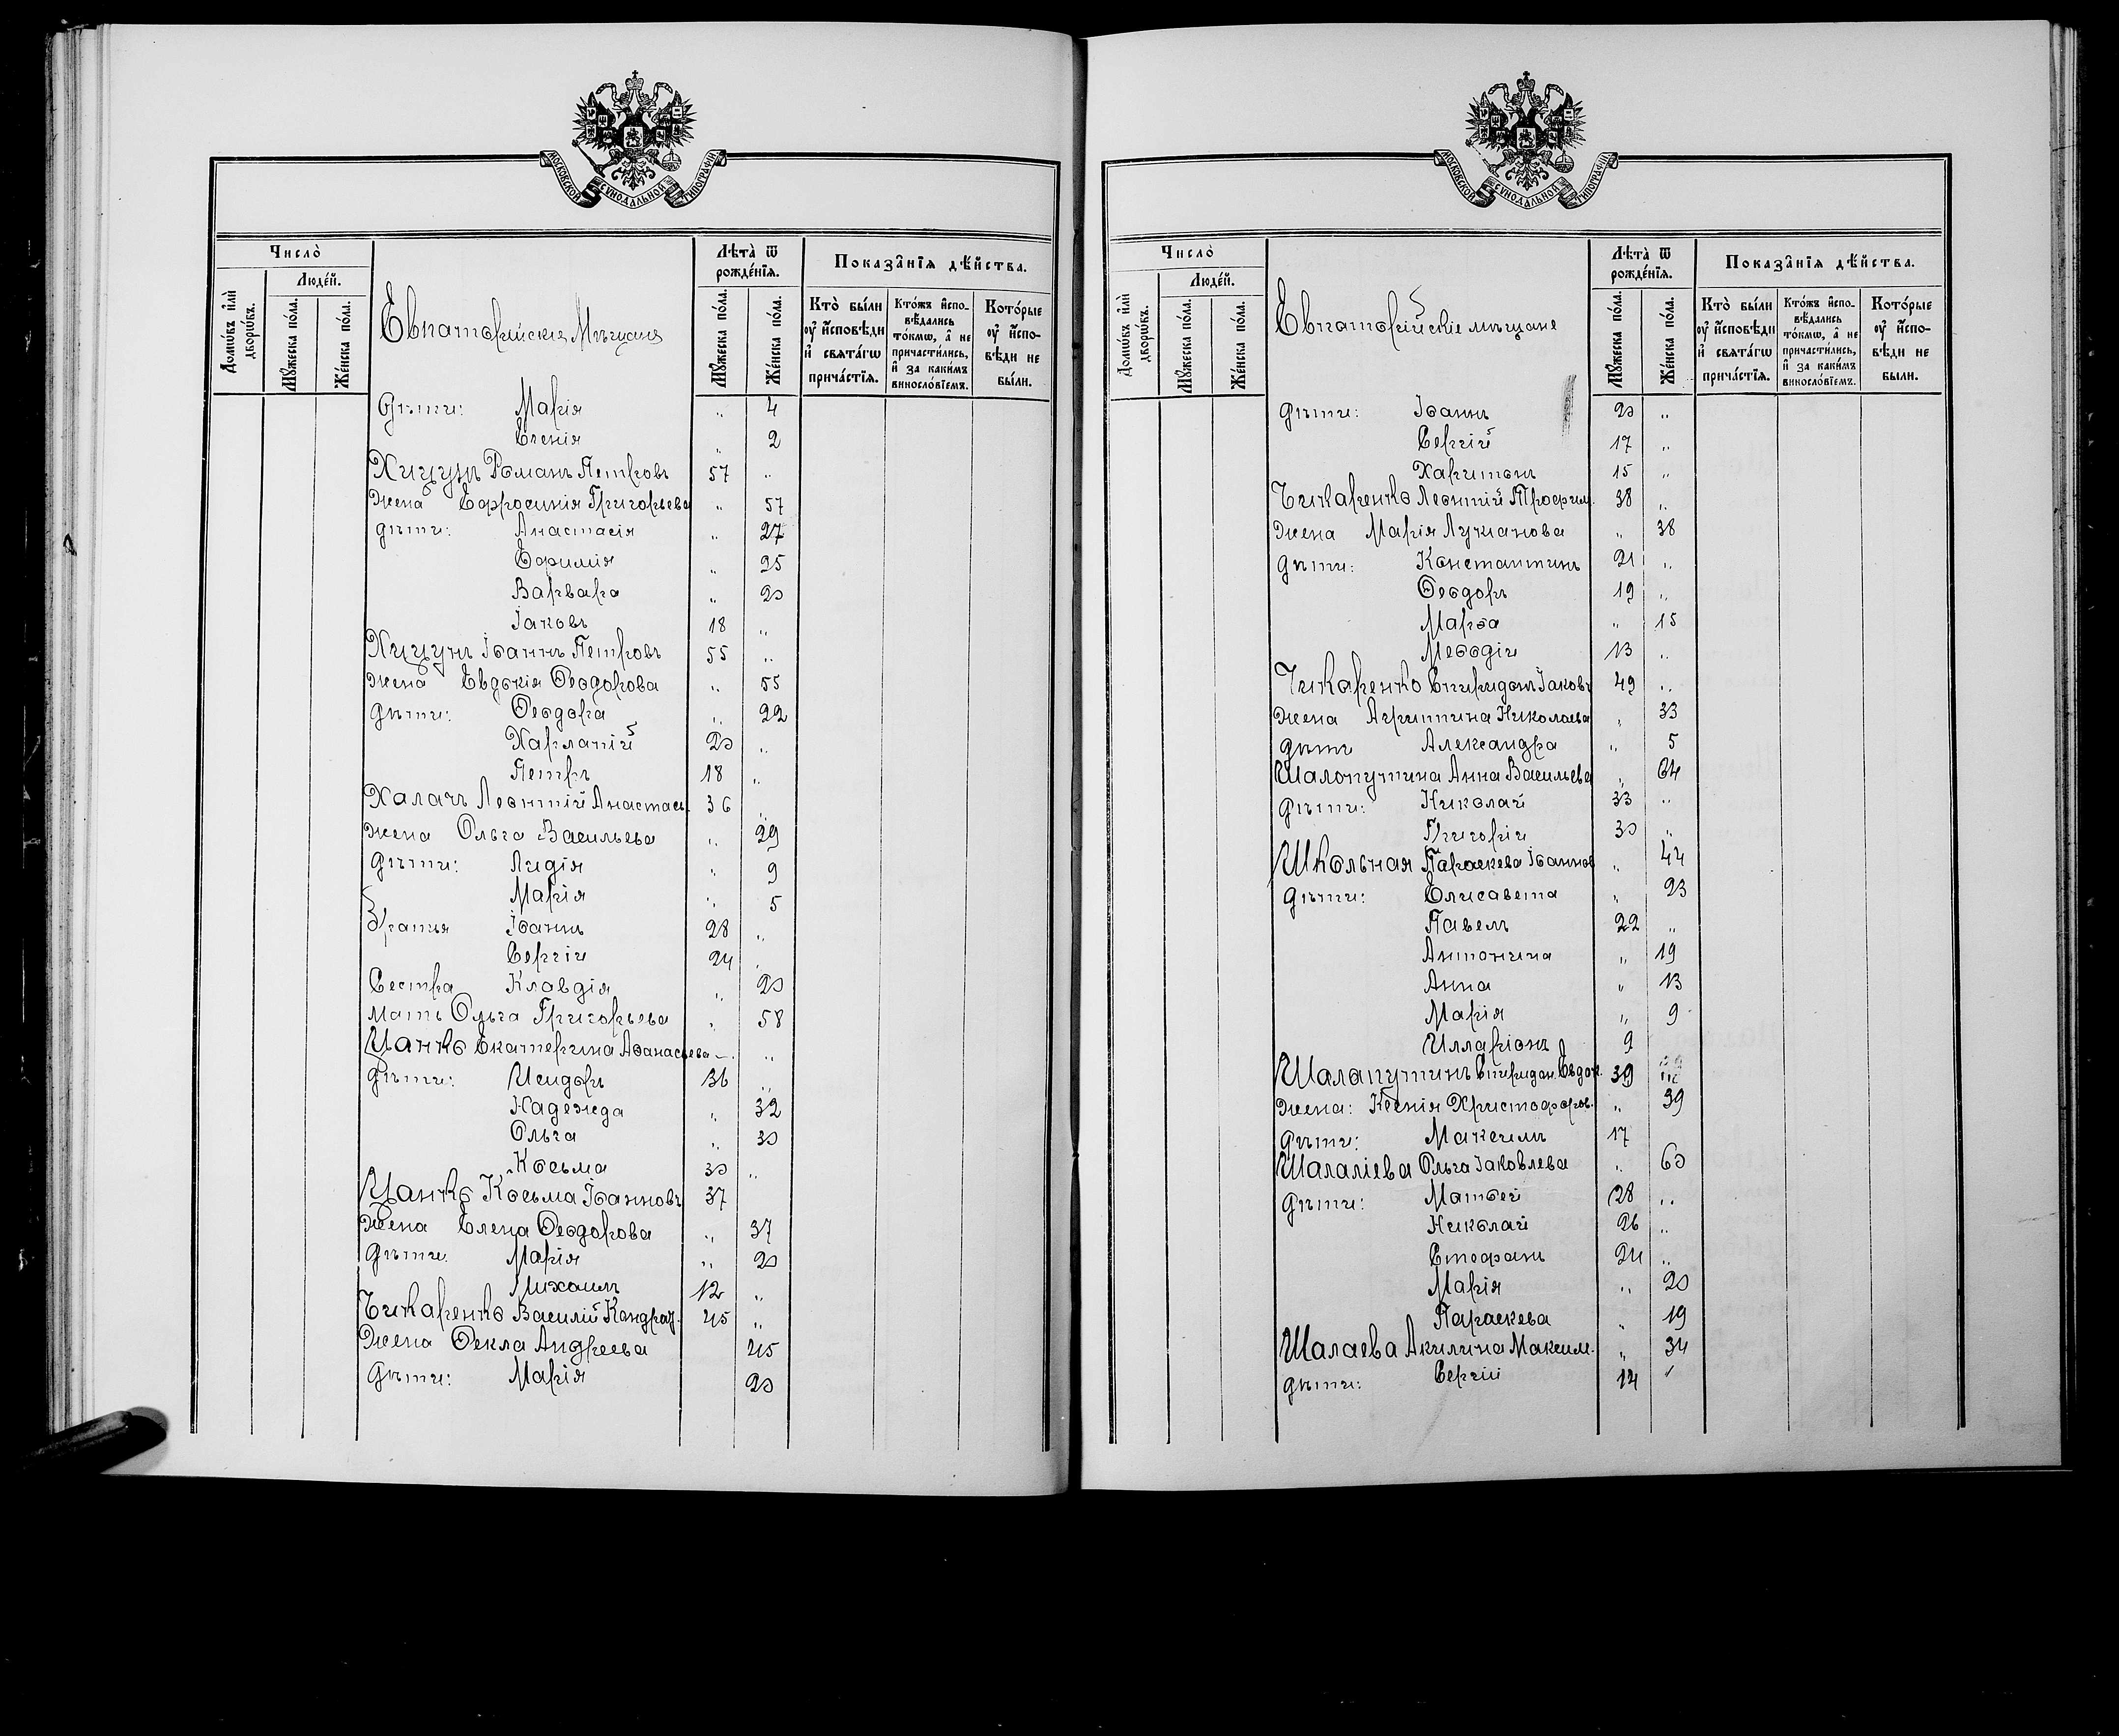 МОСКОВСКОЙ СѴНОДАЛЬНОЙ ТИПОГРАФІИ
Число̀
Домѡ́въ и҆лѝ дворѡ́въ.
Люде́й.
Мꙋ́жеска по́ла.
Же́нска по́ла.
Евпаторійскіе Мѣщане
Лѣта̀ ѿ рожде́нїѧ.
Мꙋ́жеска по́ла.
Же́нска по́ла.
Показа̂нїѧ дѣ́йства.
Кто̀ бы́ли ᲂу҆ и҆сповѣди и҆ свѧта́гѡ прича́стїѧ.
Кто́жъ и҆спо-вѣ́дались то́кмѡ, а҆ не причасти́лись, и҆ за каки́мъ винослоо́вїемъ.
Кото́рые ᲂу҆ и҆спо-вѣди не бы́ли.
Дѣти: Марія „ 4
Ксенія „ 2
Хицунъ Романъ Петровъ 57 „
Жена Евфросинія Григорьева „ 57
дѣти: Анастасія „ 27
Евфимія „ 25
Варвара „ 20
Іаковъ 18 „
Хицунъ Іоаннъ Петровъ 55 „
жена Евдокія Ѳеодорова „ 55
дѣти: Ѳеодора „ 22
Харлапій 20 „
Петръ 18 „
Халачъ Леонтій Анастас. 36 „
жена Ольга Васильева „ 29
дѣти: Лидія „ 9
Марія „ 5
Братья Іоаннъ 28 „
Сергій 24 „
Сестра Клавдія „ 20
мать Ольга Григорьева „ 58
Цанко Екатерина Аѳанасьева — „
дѣти: Исидоръ 36 „
Надежда „ 32
Ольга „ 30
Косьма 30 „
Цанко Косьма Іоанновъ 37
жена Елена Ѳеодорова „ 37
дѣти: Марія „ 20
Михаилъ 12 „
Чикаренко Василій Кондрат. 45 „
Жена Ѳекла Андреева 45
дѣти: Марія 20
МОСКОВСКОЙ СѴНОДАЛЬНОЙ ТИПОГРАФІИ
Число̀
Домѡ́въ и҆лѝ дворѡ́въ.
Люде́й.
Мꙋ́жеска по́ла.
Же́нска по́ла.
Евпаторійскіе мѣщане
Лѣта̀ ѿ рожде́нїѧ.
Мꙋ́жеска по́ла.
Же́нска по́ла.
Показа̂нїѧ дѣ́йства.
Кто̀ бы́ли ᲂу҆ и҆сповѣди и҆ свѧта́гѡ прича́стїѧ.
Кто́жъ и҆спо-вѣ́дались то́кмѡ, а҆ не причасти́лись, и҆ за каки́мъ винослоо́вїемъ.
Кото́рые ᲂу҆ и҆спо-вѣди не бы́ли.
дѣти: Іоаннъ 20 „
Сергій 17 „
Харитонъ 15 „
Чикаренко Леонтій Трофим. 38 „
Жена Марія Лукіанова „ 38
дѣти: Константинъ 21 „
Ѳеодоръ 19 „
Марѳа „ 15
Меѳодій 13 „
Чикаренко Спиридонъ Іаковъ 49 „
Жена Агриппина Николаева „ 33
дѣти Александра „ 5
Шалопутина Анна Васильева „ 64
дѣти: Николай 33 „
Григорій 30 „
Школьная Параскева Іоаннов „ 44
дѣти: Елисавета „ 23
Павелъ 22 „
Антонина „ 19
Анна „ 13
Марія „ 9
Илларіонъ 9
Шалапутинъ Спиридон. Евдок. 39
Жена: Ксенія Христофоров. „ 39
Дѣти: Максимъ 17
Шалаліева Ольга Іаковлева „ 60
дѣти: Матѳей 28 „
Николай 26 „
Стефанъ 24 „
Марія „ 20
Параскева „ 19
Шалаева Акилина Максим. „ 34
дѣти: Сергій 14